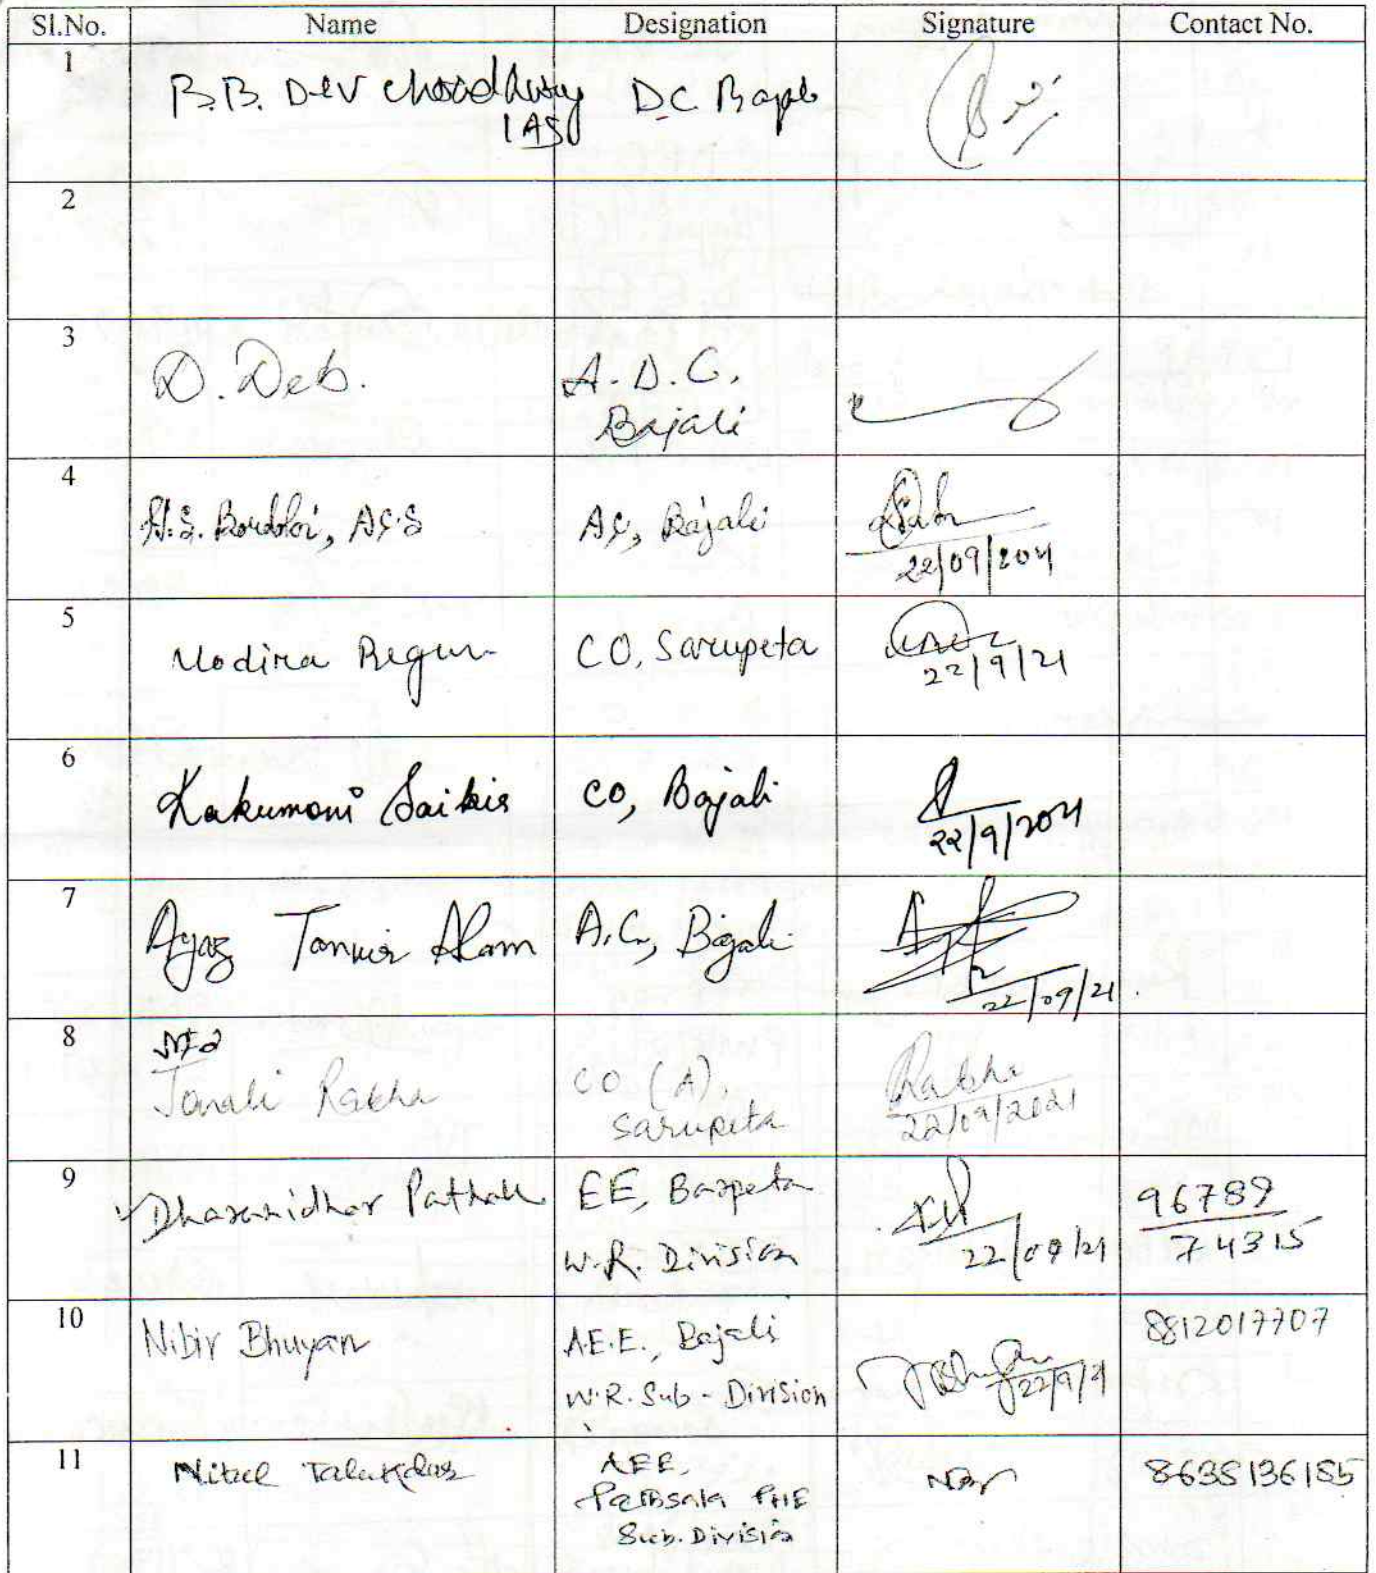 Sl.No. Name Designation Signature Contact No.
1 B.B. Dev Choudhury D.C. Bajali
IAS
2
3 D. Deb. A.D.C.
Bajali
4 H.S. Bordoloi, ACS AC, Bajali
22/09/2021
5 Modira Begum CO, Sarupeta
22/9/21
6 Kakumoni Saikia CO, Bajali
22/9/2021
7 Ayaz Tanwir Alam A.C, Bajali
22/09/21.
8
Jonali Rabha CO (A), Rabha
Sarupeta 22/09/2021
9 Dharanidhar Pathak EE, Barpeta 96789
W.R. Division 22/09/21 74315
10 Nibir Bhuyan A.E.E., Bajali 8812017707
W.R. Sub-Division 22/9/21
11 Nitul Talukdar AEE, 8638136185
Pathsala PHE
Sub. Division